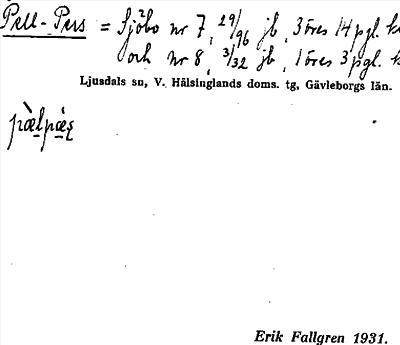 Pell-Pers = Sjöbo nr 7, 29/96 jb, 3 öres 14 pgl.
och nr 8, 3/32 jb, 1 öres 3 pgl.
Ljusdals sn, V. Hälsinglands doms. tg, Gävleborgs län.
Erik Fallgren 1931.